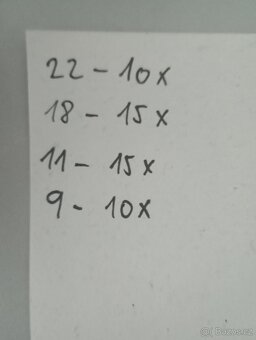 22 - 10x
18 - 15x
11 - 15x
9 - 10x
sbazar.cz